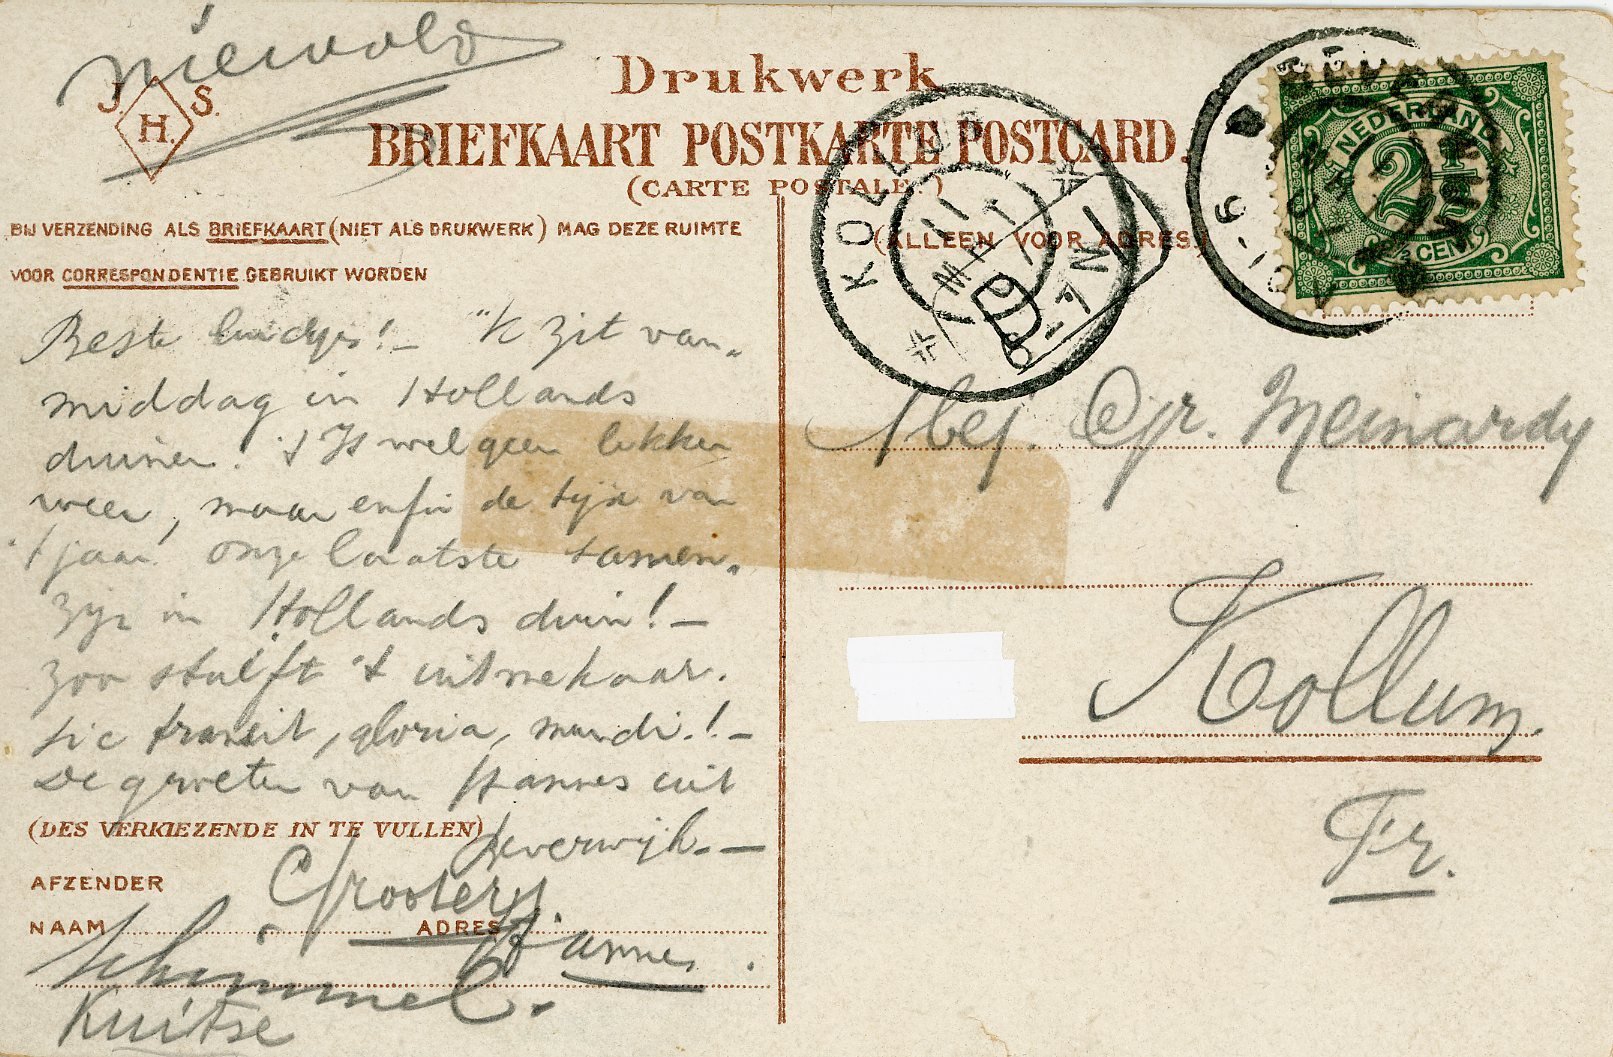 Niewold
J. H. S.
Drukwerk
BRIEFKAART POSTKARTE POSTCARD.
(CARTE POSTALE.)
BIJ VERZENDING ALS BRIEFKAART (NIET ALS DRUKWERK) MAG DEZE RUIMTE
VOOR CORRESPONDENTIE GEBRUIKT WORDEN
(ALLEEN VOOR ADRES.)
KOLLUM
11
7 N
NEDERLAND
2½
2½ CENT
Beste luidjes! – 'k zit van-
middag in Hollands
duinen. 't Is wel geen lekker
weer, maar enfin de tijd van
't jaar. onze laatste samen-
zijn in Hollands duin! –
zoo stuift 't uit mekaar.
sic transit, gloria, mundi! –
De groeten van Hannes uit
Beverwijk. –
(DES VERKIEZENDE IN TE VULLEN)
AFZENDER
NAAM
ADRES
Hannes.
Schimmel.
Kuitse
Mej. Gr. Meinardy
Kollum.
Fr.